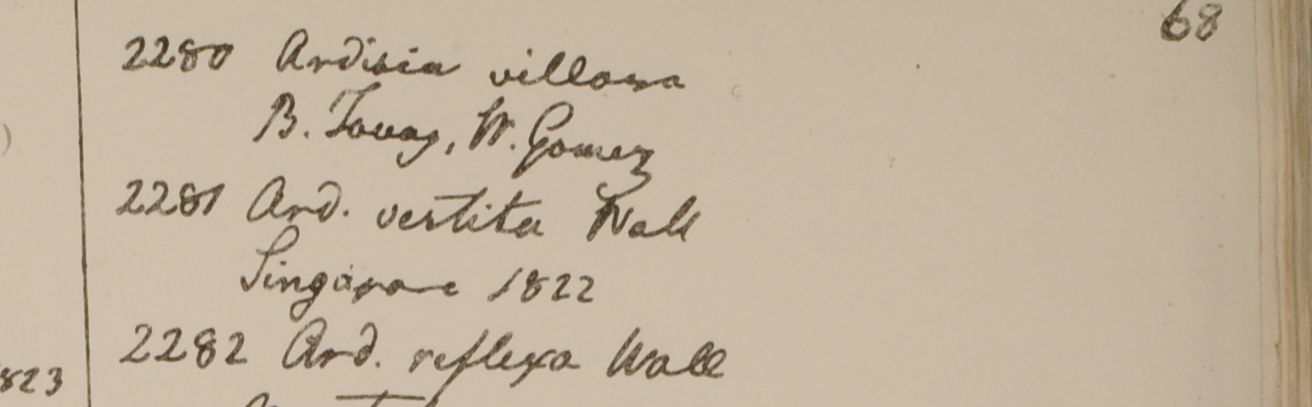 68
2280 Ardisia villosa
B. Tavoy, W. Gomez
2281 Ard. vestita Wall
Singapore 1822
2282 Ard. reflexa Wall
823